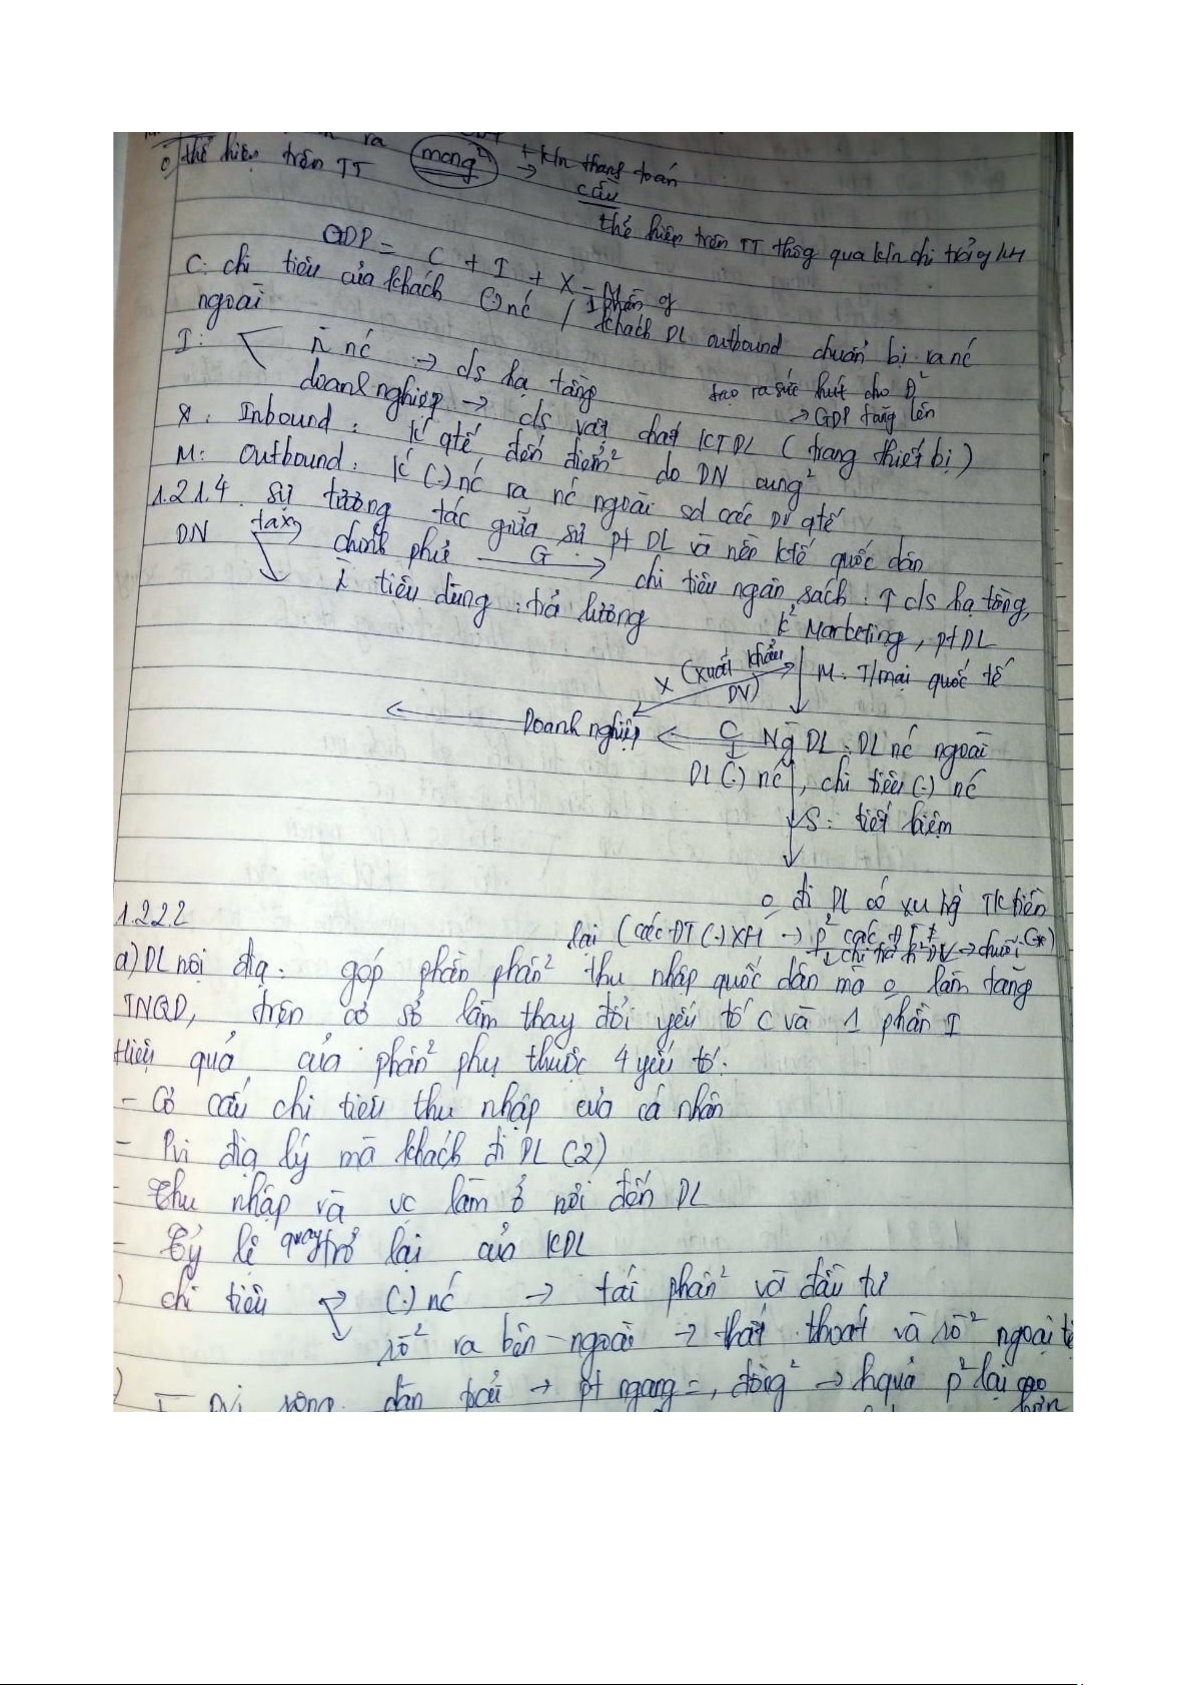 thể hiện trên TT (mong²) → + kln thanh toán
cầu
thể hiện trên TT thông qua kln chi trả
GDP = C + I + X - M
C: chi tiêu của khách (.) nc / 1 phần of
ngoài khách DL outbound chuẩn bị ra nc
I: n nc → cls hạ tầng
doanh nghiệp → cls vật chất KTDL (trang thiết bị)
tạo ra sức hút cho D²
→ GDP tăng lên
X: Inbound: K qtế đến điểm² do DN cung²
M: Outbound: K (.) nc ra nc ngoài sd các DV qtế
1.2.1.4 sự tương tác giữa sự pt DL và nền ktế quốc dân
DN tax chính phủ G → chi tiêu ngân sách: ↑ cls hạ tầng,
tiêu dùng: trả lương k² Marketing, pt DL
X (xuất khẩu DV) M: T/mại quốc tế
← Doanh nghiệp ← C I Ng DL: DL nc ngoài
DL (.) nc, chi tiêu (.) nc
S: tiết kiệm
1.2.2.2 o đi DL có xu hg TK tiền
lại (các ĐT (.) XH → p² các
a) DL nội địa: góp phần phân² thu nhập quốc dân mà o làm tăng
TNQD, trên cơ sở làm thay đổi yếu tố C và 1 phần I
Hiệu quả của phân² phụ thuộc 4 yếu tố:
- Cơ cấu chi tiêu thu nhập của cá nhân
- Pvi địa lý mà khách đi DL (2)
- thu nhập và vc làm ở nơi đến DL
- Tỷ lệ quay trở lại của KDL
) chi tiêu (.) nc → tái phân² và đầu tư
rò² ra bên ngoài → thất thoát và rò² ngoại tệ
) - pvi rộng, dàn trải → pt ngang =, đồng² → hquả p² lại cao
hơn